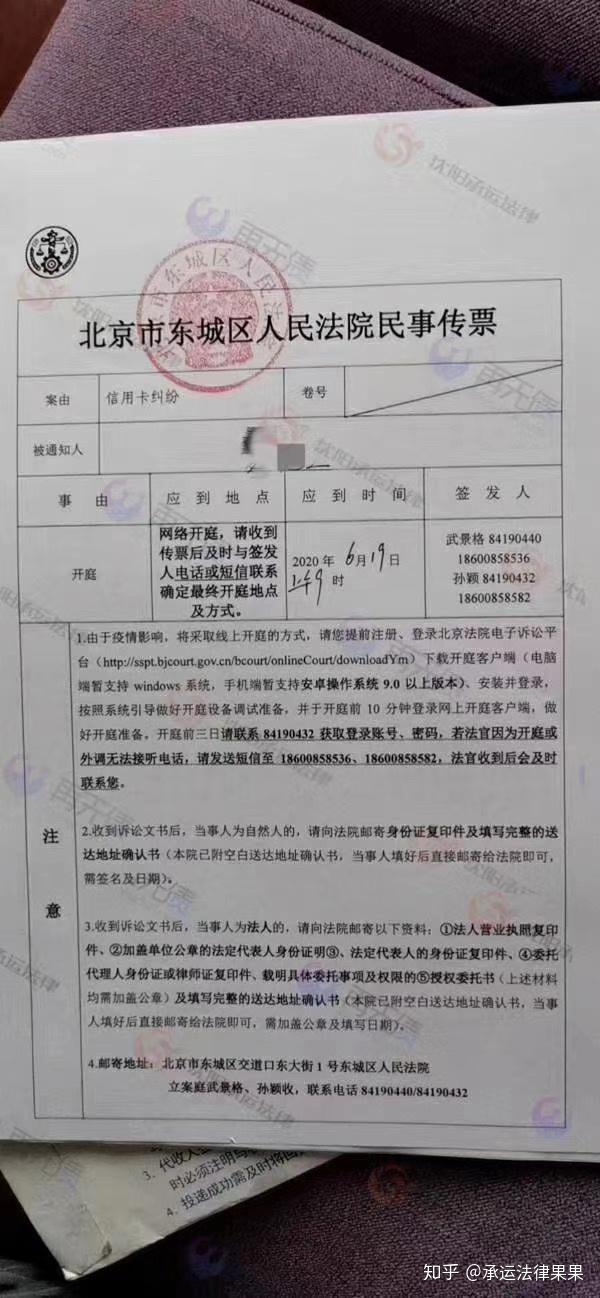 北京市东城区人民法院民事传票
案由 信用卡纠纷 卷号
被通知人
事由 应到地点 应到时间 签发人
开庭
网络开庭，请收到
传票后及时与签发
人电话或短信联系
确定最终开庭地点
及方式。
2020年6月19日
上午9时
武景格 84190440
18600858536
孙颖 84190432
18600858582
注意
1.由于疫情影响，将采取线上开庭的方式，请您提前注册、登录北京法院电子诉讼平
台（http://sspt.bjcourt.gov.cn/bcourt/onlineCourt/downloadYm）下载开庭客户端（电脑
端暂支持 windows 系统，手机端暂支持安卓操作系统 9.0 以上版本）、安装并登录，
按照系统引导做好开庭设备调试准备，并于开庭前 10 分钟登录网上开庭客户端，做
好开庭准备，开庭前三日请联系 84190432 获取登录账号、密码，若法官因为开庭或
外调无法接听电话，请发送短信至 18600858536、18600858582，法官收到后会及时
联系您。
2.收到诉讼文书后，当事人为自然人的，请向法院邮寄身份证复印件及填写完整的送
达地址确认书（本院已附空白送达地址确认书，当事人填好后直接邮寄给法院即可，
需签名及日期）。
3.收到诉讼文书后，当事人为法人的，请向法院邮寄以下资料：①法人营业执照复印
件、②加盖单位公章的法定代表人身份证明③、法定代表人的身份证复印件、④委托
代理人身份证或律师证复印件、载明具体委托事项及权限的⑤授权委托书（上述材料
均需加盖公章）及填写完整的送达地址确认书（本院已附空白送达地址确认书，当事
人填好后直接邮寄给法院即可，需加盖公章及填写日期）。
4.邮寄地址：北京市东城区交道口东大街 1 号东城区人民法院
立案庭武景格、孙颖收，联系电话 84190440/84190432
3. 代收人
时必须注明与
4. 投递成功需及时将回
沈阳承运法律
再无债
知乎 @承运法律果果